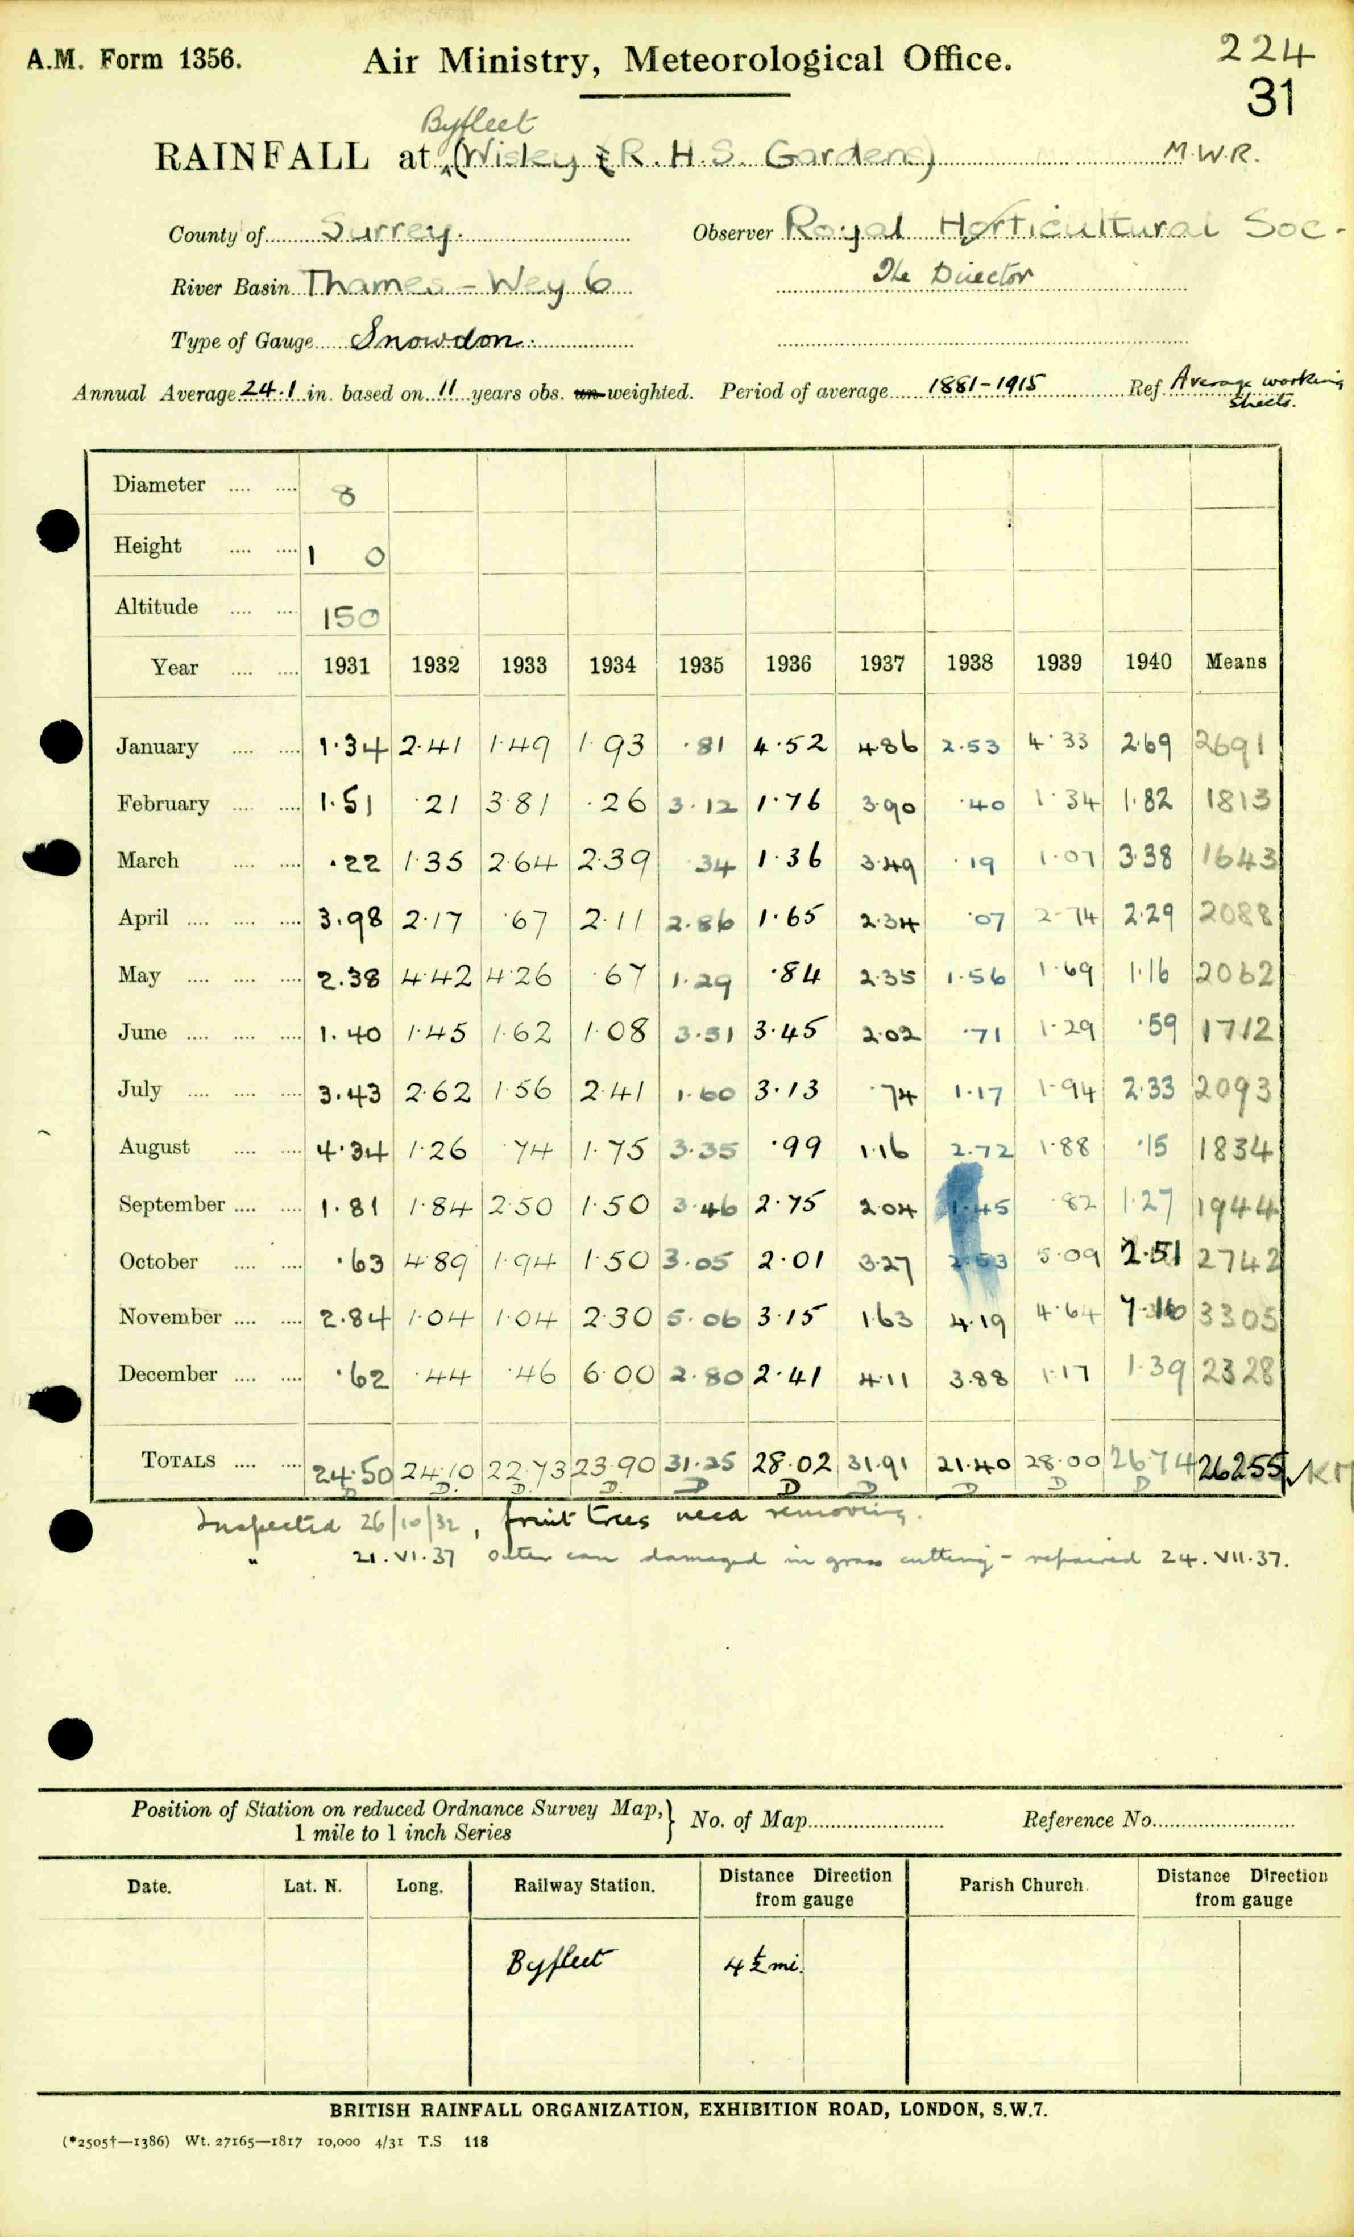 A.M. Form 1356. Air Ministry, Meteorological Office. 224
31
Byfleet
RAINFALL at (Wisley R.H.S. Gardens) M.W.R.
County of Surrey. Observer Royal Horticultural Soc.
River Basin Thames - Wey 6 The Director
Type of Gauge Snowdon.
Annual Average 24.1 in. based on 11 years obs. un-weighted. Period of average 1881-1915 Ref Average working
sheets.
Diameter .... .... 8
Height .... .... 1 0
Altitude .... .... 150
Year .... .... 1931 1932 1933 1934 1935 1936 1937 1938 1939 1940 Means
January .... .... 1.34 2.41 1.49 1.93 .81 4.52 4.86 2.53 4.33 2.69 2691
February .... .... 1.51 .21 3.81 .26 3.12 1.76 3.90 .40 1.34 1.82 1813
March .... .... .22 1.35 2.64 2.39 .34 1.36 3.49 .19 1.07 3.38 1643
April .... .... .... 3.98 2.17 .67 2.11 2.86 1.65 2.34 .07 2.74 2.29 2088
May .... .... .... 2.38 4.42 4.26 .67 1.29 .84 2.35 1.56 1.69 1.16 2062
June .... .... .... 1.40 1.45 1.62 1.08 3.51 3.45 2.02 .71 1.29 .59 1712
July .... .... .... 3.43 2.62 1.56 2.41 1.60 3.13 .74 1.17 1.94 2.33 2093
August .... .... 4.34 1.26 .74 1.75 3.35 .99 1.16 2.72 1.88 .15 1834
September .... .... 1.81 1.84 2.50 1.50 3.46 2.75 2.04 1.45 .82 1.27 1944
October .... .... .63 4.89 1.94 1.50 3.05 2.01 3.27 2.53 5.09 2.51 2742
November .... .... 2.84 1.04 1.04 2.30 5.06 3.15 1.63 4.19 4.64 7.16 3305
December .... .... .62 .44 .46 6.00 2.80 2.41 4.11 3.88 1.17 1.39 2328
TOTALS .... .... 24.50 24.10 22.73 23.90 31.25 28.02 31.91 21.40 28.00 26.74 26255 ✓
D D. D. D. D D D D D D
Inspected 26/10/32, fruit trees need removing.
" 21.VI.37 outer can damaged in grass cutting - repaired 24.VII.37.
Position of Station on reduced Ordnance Survey Map,} No. of Map Reference No.
1 mile to 1 inch Series
Date. Lat. N. Long. Railway Station. Distance Direction from gauge Parish Church. Distance Direction from gauge
Byfleet 4½ mi.
BRITISH RAINFALL ORGANIZATION, EXHIBITION ROAD, LONDON, S.W.7.
(*2505†—1386) Wt. 27165—1817 10,000 4/31 T.S 118